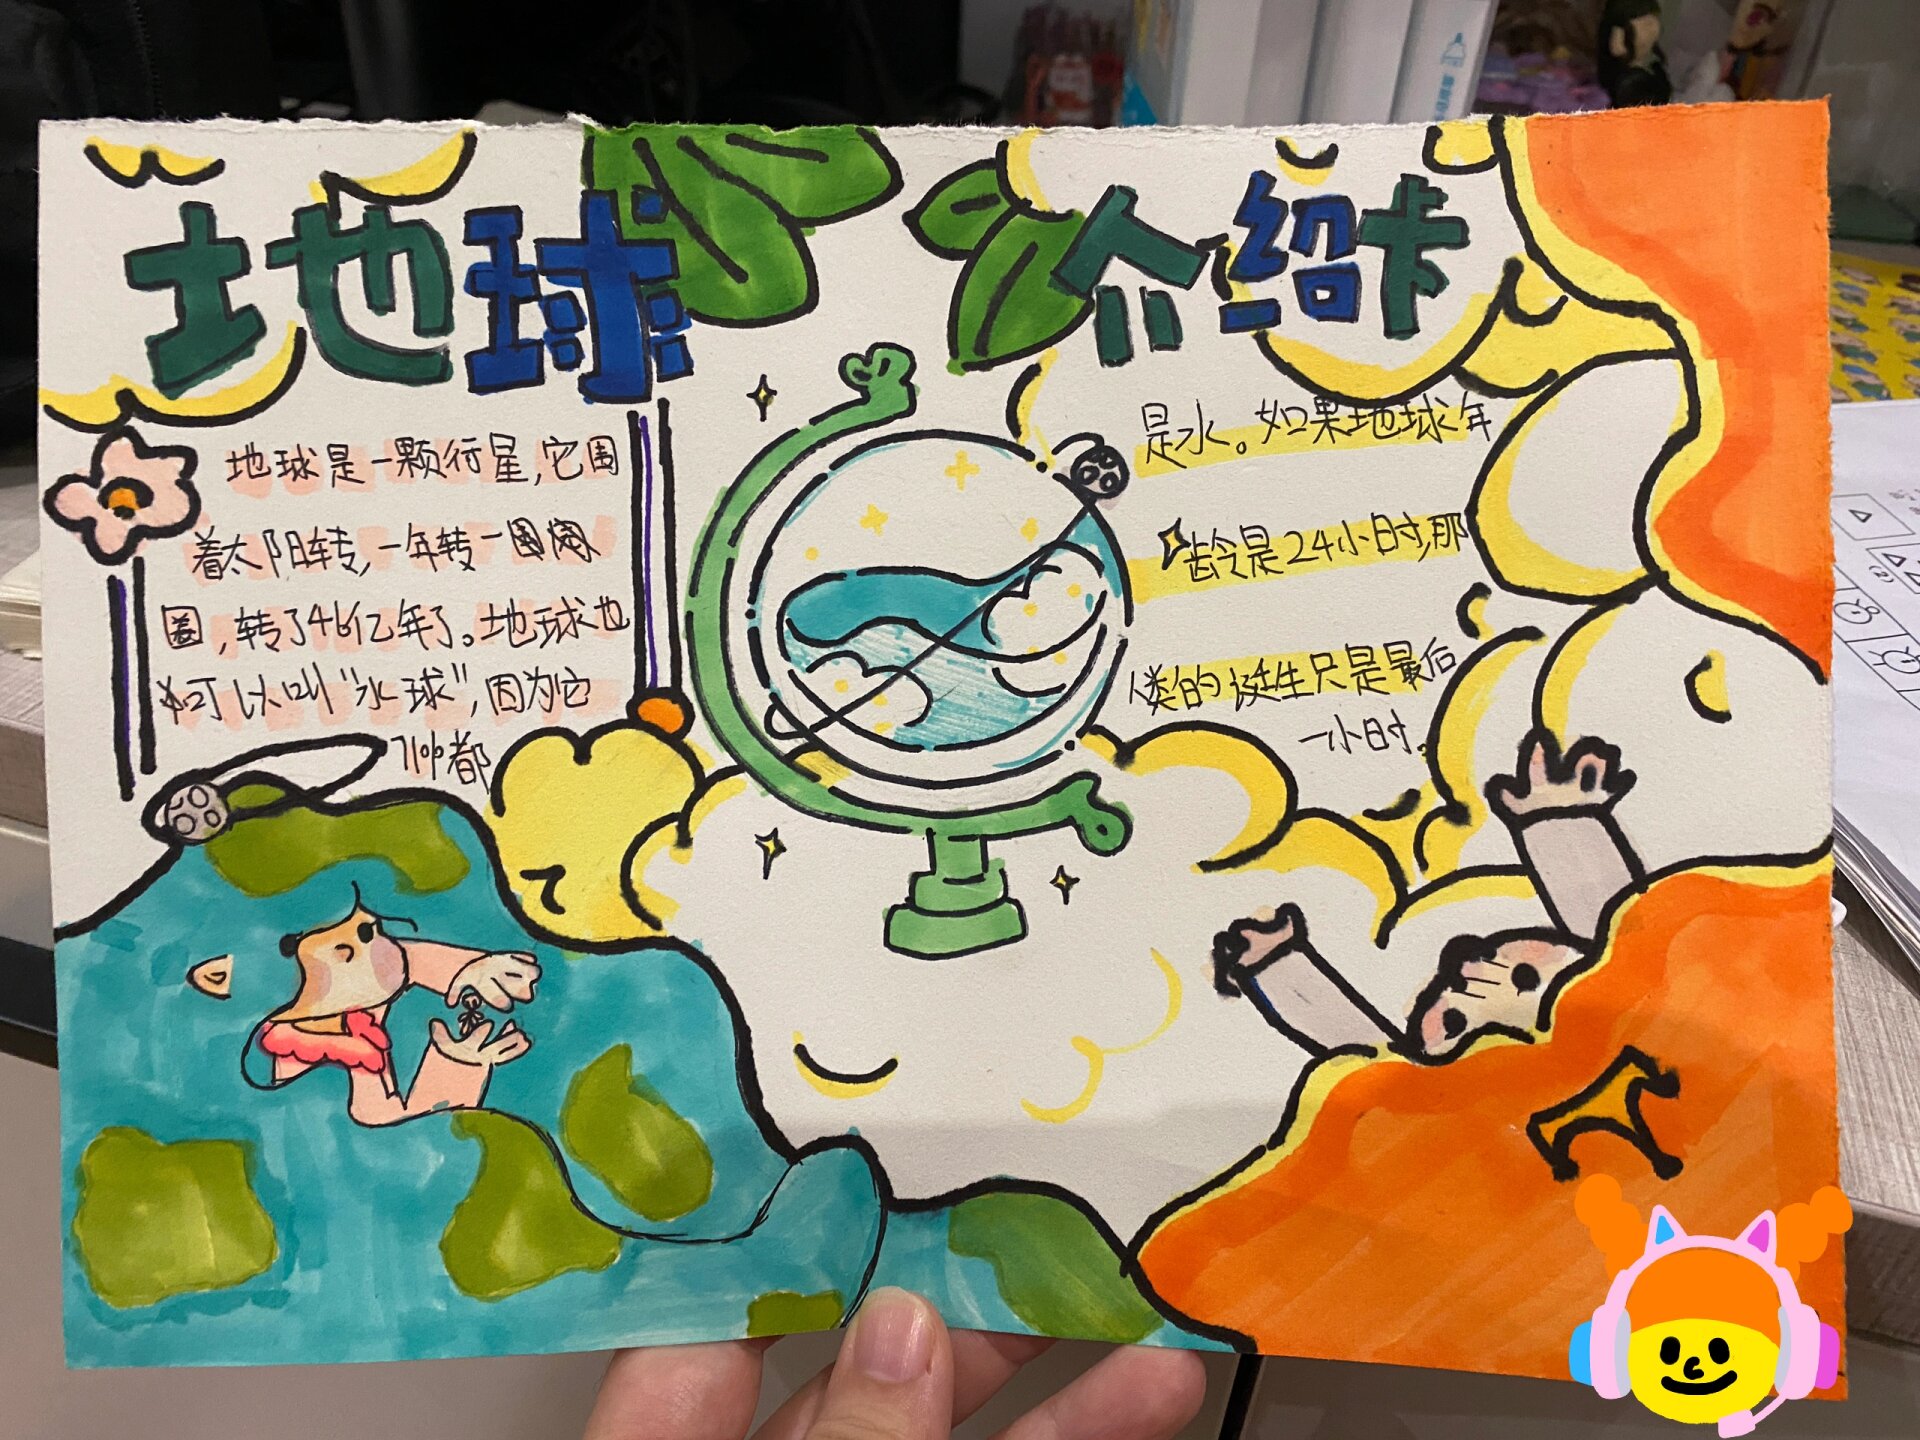 地球 介绍卡
地球是一颗行星,它围
着太阳转,一年转一
圈,转了46亿年了。地球也
可以叫“水球”,因为它
71%都
是水。如果地球年
龄是24小时,那
人类的诞生只是最后
一小时。